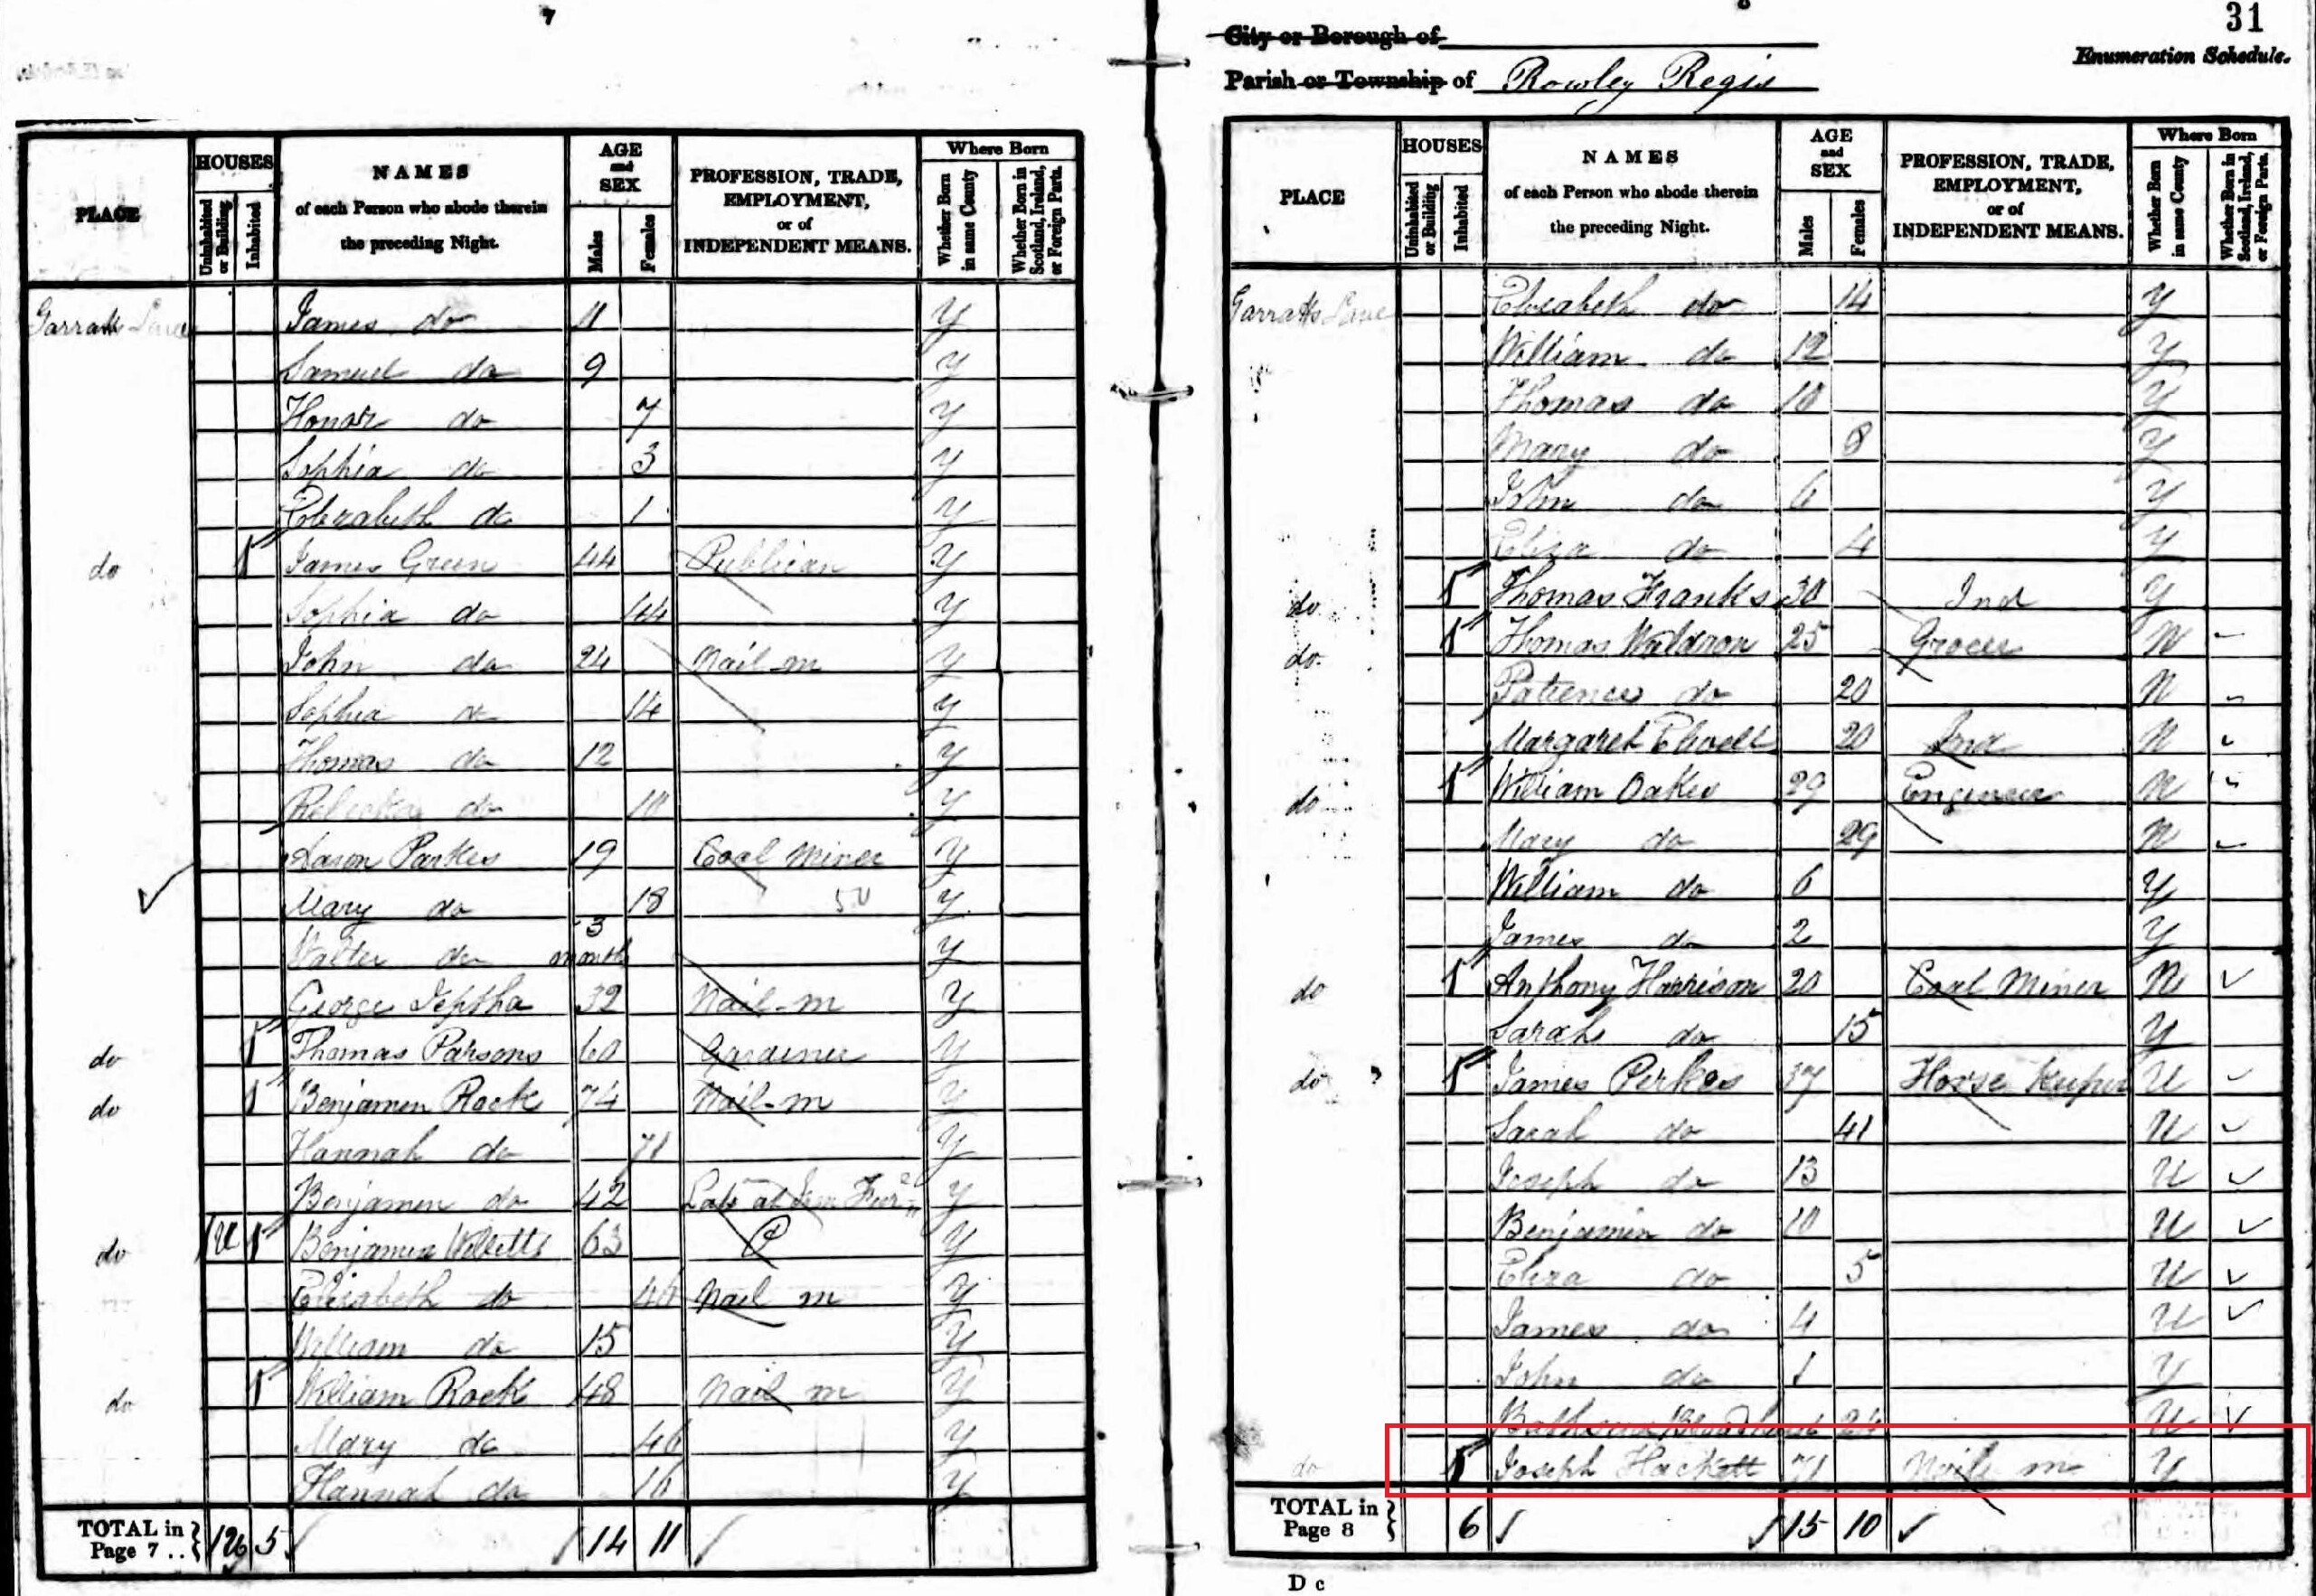 7
PLACE
HOUSES
Uninhabited or Building
Inhabited
NAMES
of each Person who abode therein
the preceding Night.
AGE
and
SEX
Males
Females
PROFESSION, TRADE,
EMPLOYMENT,
or of
INDEPENDENT MEANS.
Where Born
Whether Born in same County
Whether Born in Scotland, Ireland, or Foreign Parts.
Garratts Lane James do 11 Y
Samuel do 9 Y
Honor do 7 Y
Sophia do 3 Y
Elizabeth do 1 Y
do 1 James Green 44 Publican Y
Sophia do 44 Y
John do 24 Nail m Y
Sophia do 14 Y
Thomas do 12 Y
Rebecka do 10 Y
Aaron Parkes 19 Coal Miner Y
Mary do 18 Y
Walter do 3 month Y
George Jeptha 32 Nail-m Y
do 1 Thomas Parsons 60 Gardener Y
do 1 Benjamen Rock 74 Nail-m Y
Hannah do 71 Y
Benjamen do 42 Lab at Iron Fur Y
do 1U 1 Benjamen Willetts 63 Y
Elizabeth do Nail m Y
William do 15 Y
do 1 William Rock 48 Nail m Y
Mary do 46 Y
Hannah do 16 Y
TOTAL in Page 7 .. 5 14 11
8
31
City or Borough of
Enumeration Schedule.
Parish or Township of Rowley Regis
PLACE
HOUSES
Uninhabited or Building
Inhabited
NAMES
of each Person who abode therein
the preceding Night.
AGE
and
SEX
Males
Females
PROFESSION, TRADE,
EMPLOYMENT,
or of
INDEPENDENT MEANS.
Where Born
Whether Born in same County
Whether Born in Scotland, Ireland, or Foreign Parts.
Garratts Lane Elizabeth do 14 Y
William do 12 Y
Thomas do 10 Y
Mary do 8 Y
John do 6 Y
Eliza do 4 Y
do 1 Thomas Franks 30 Ind Y
do 1 Thomas Waldron 25 Grocer N
Patience do 20 N
Margaret Elwell 20 Ind N
do 1 William Oakes 29 Engineer N
Mary do 29 N
William do 6 Y
James do 2 Y
do 1 Anthony Harrison 20 Coal Miner N
Sarah do 15 Y
do 1 James Perkes 37 Horse Keeper N
Sarah do 41 N
Joseph do 13 N
Benjamin do 10 N
Eliza do 5 N
James do 4 N
John do 1 Y
24 N
do 1 Joseph Hackett 71 Nail m Y
TOTAL in Page 8 6 15 10
D c